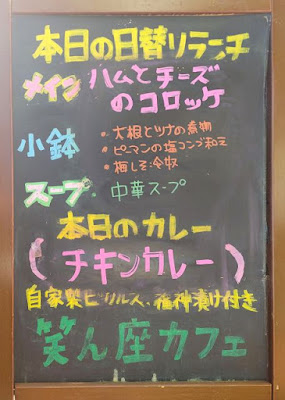 本日の日替りランチ
メイン ハムとチーズ
のコロッケ
小鉢 ・大根とツナの煮物
・ピーマンの塩コンブ和え
・梅しそ冷奴
スープ・中華スープ
本日のカレー
(チキンカレー)
自家製ピクルス、福神漬け付き
笑ん座カフェ